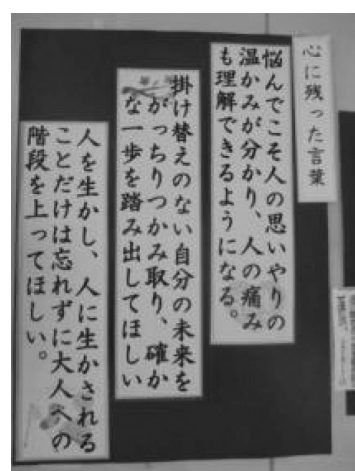 心に残った言葉
悩んでこそ人の思いやりの
温かみが分かり、人の痛み
も理解できるようになる。
掛け替えのない自分の未来を
がっちりつかみ取り、確か
な一歩を踏み出してほしい
人を生かし、人に生かされる
ことだけは忘れずに大人への
階段を上ってほしい。